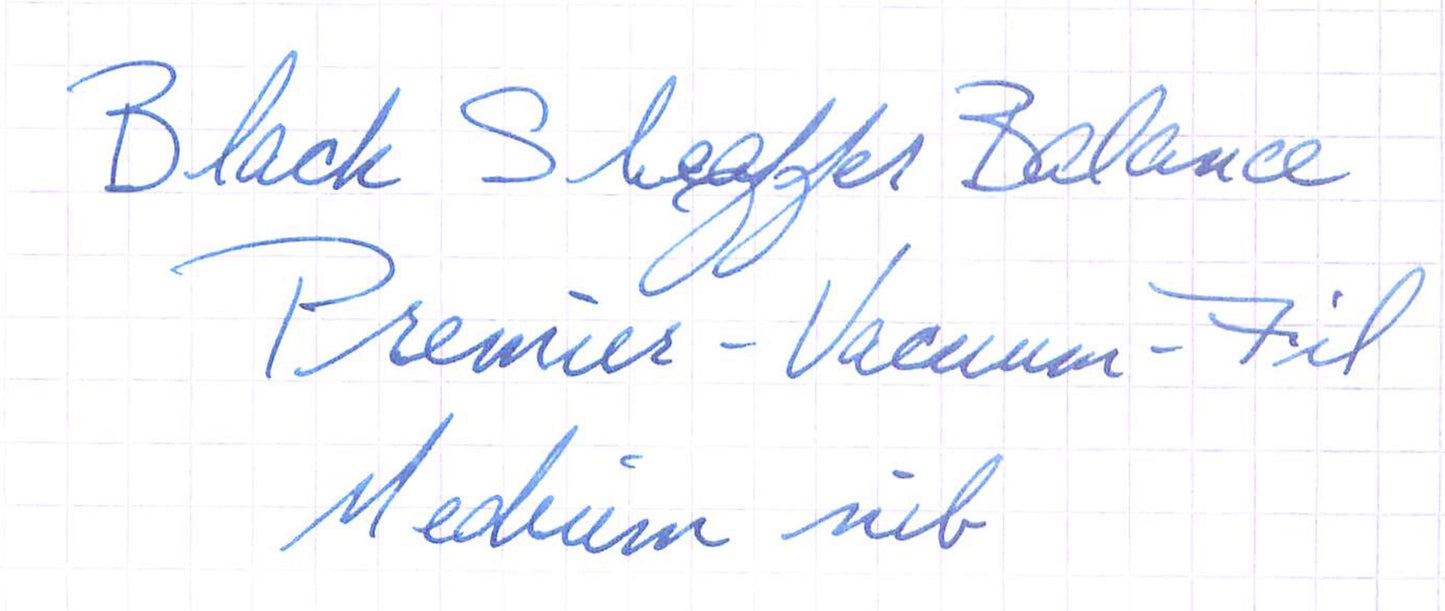 Black Sheaffer Balance
Premier - Vacuum-Fil
Medium nib